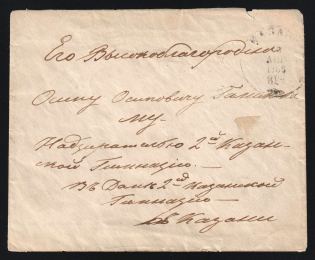 Его Высокоблагородию
Осипу Осиповичу
му
Надзирателю 2й Казан-
ской Гимназiи.—
Въ Домѣ 2й Казанской
Гимназiи—
въ Казани